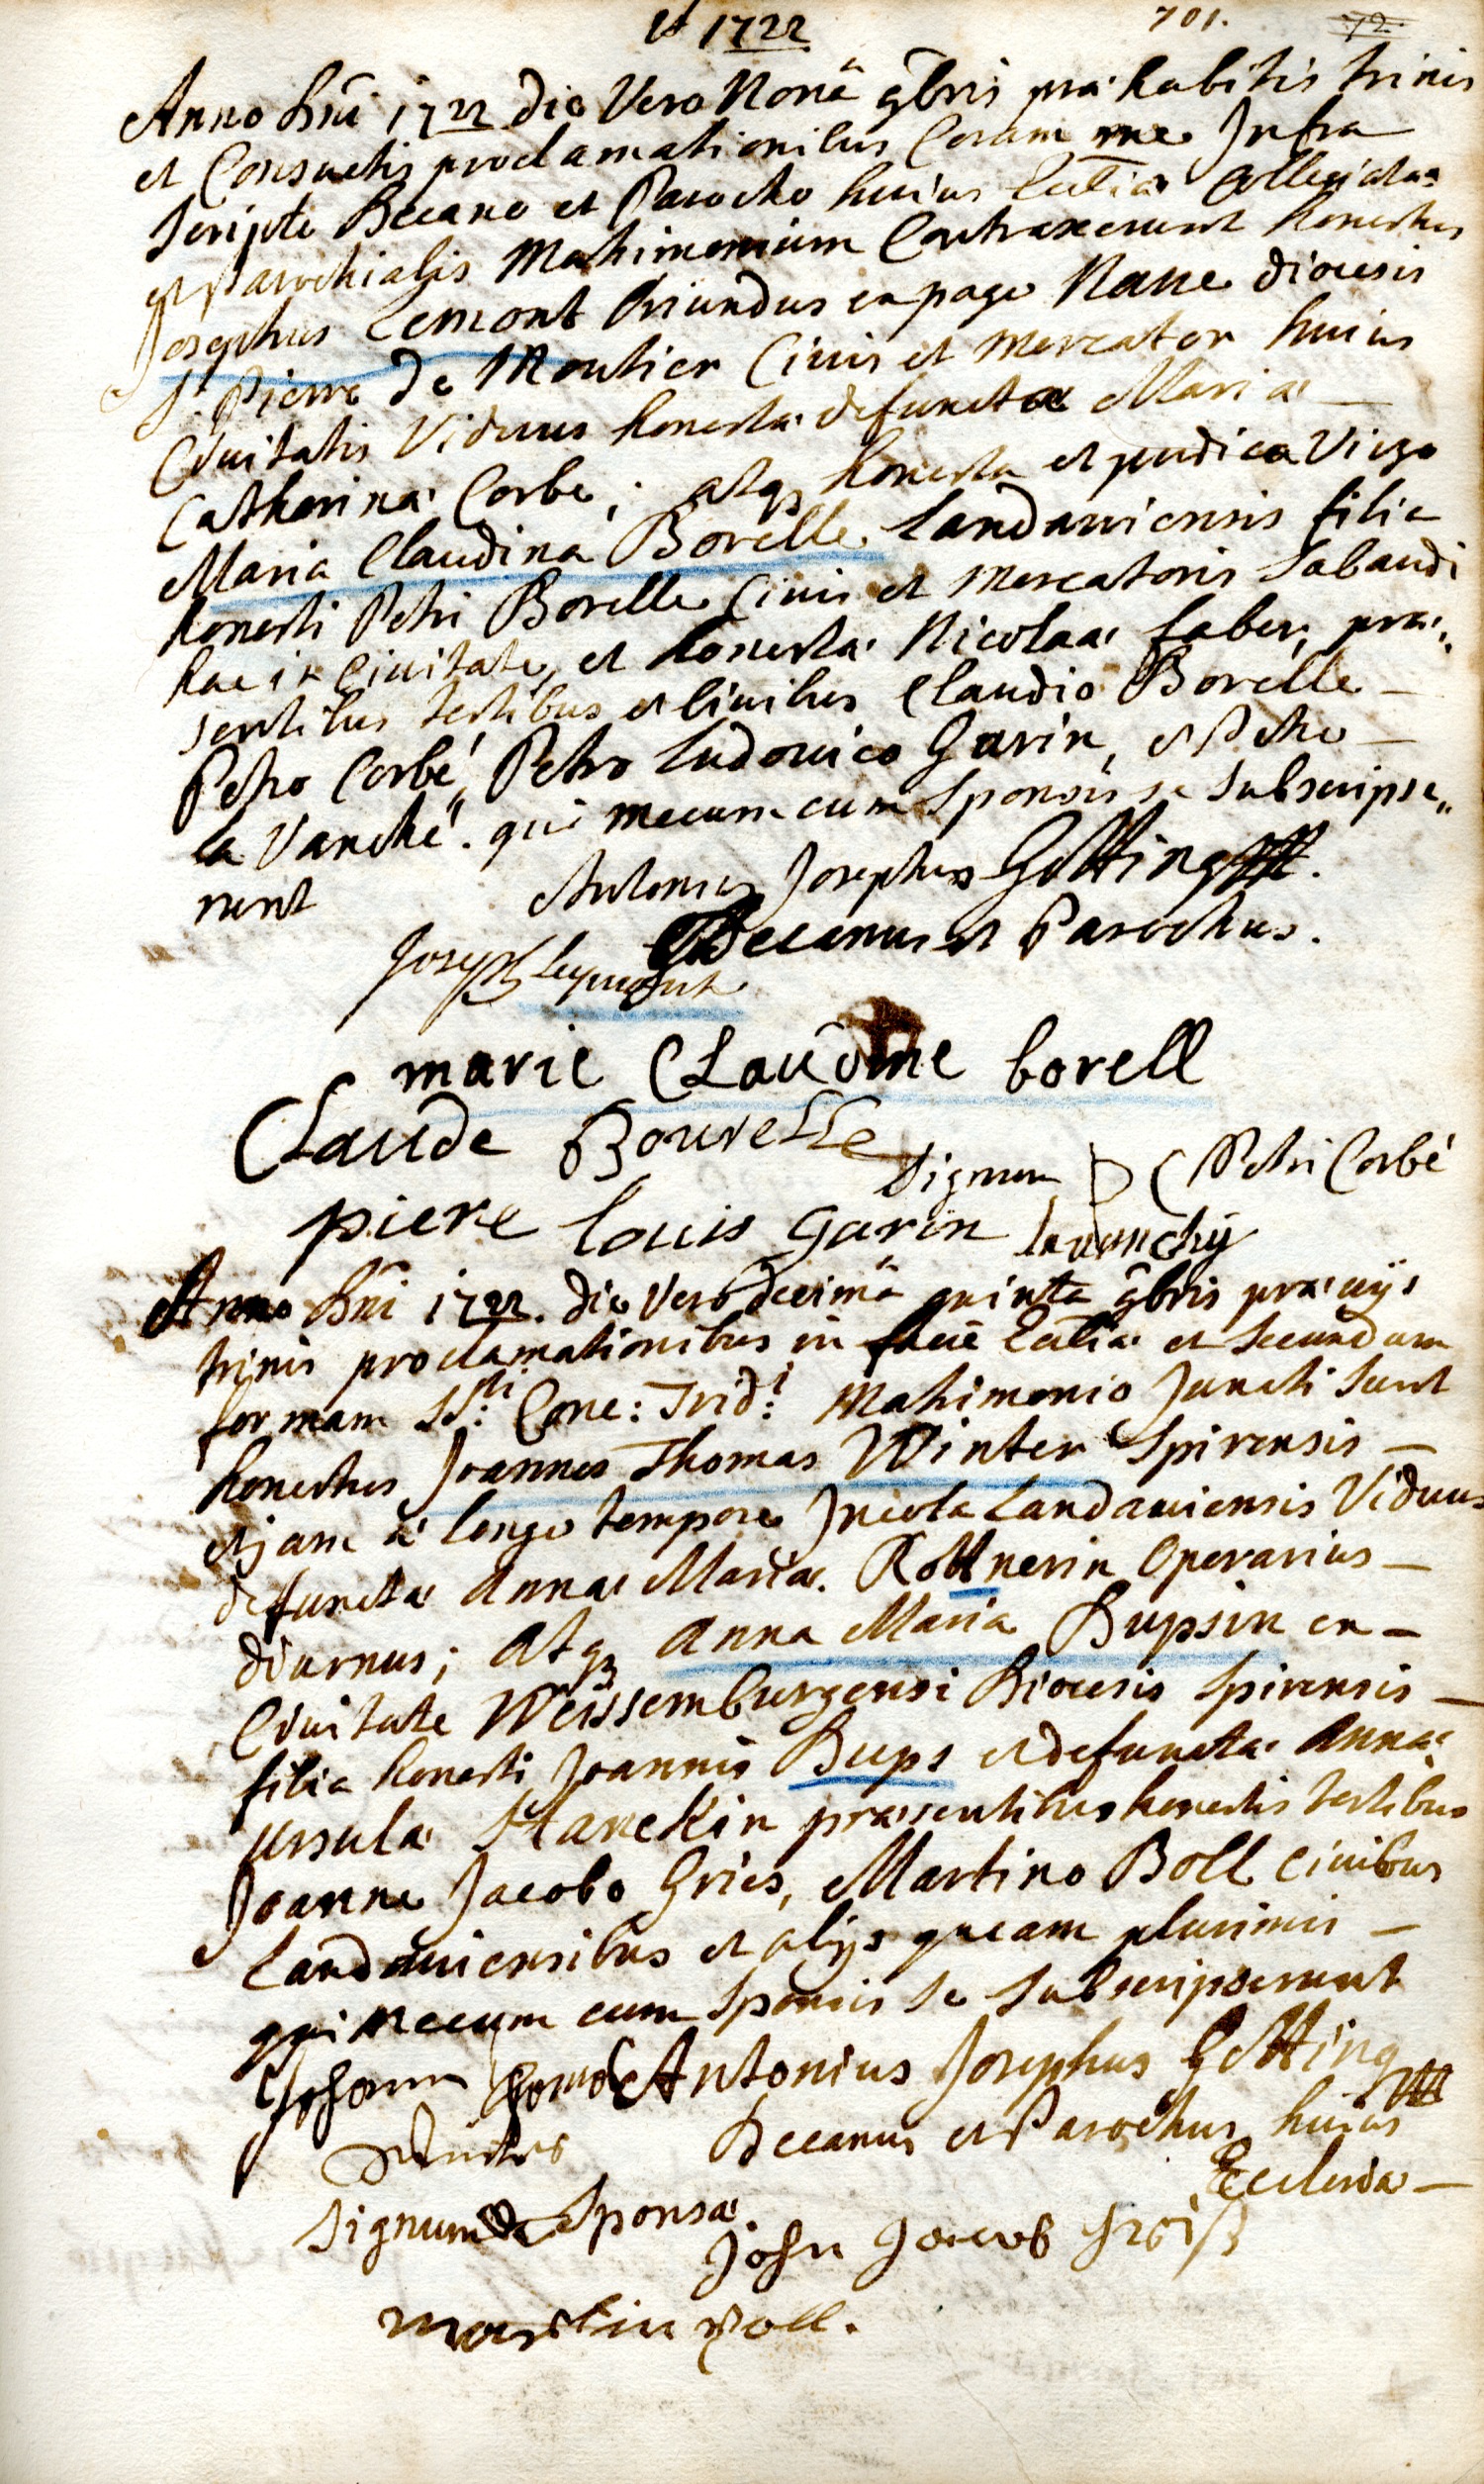 et 1722 701. 72.
Anno Dni 1722 die Vero Nonâ 9bris præhabitis trinis
et Consuetis proclamationibus Coram me Infra
scripto Decano et Parocho huius Ecclæ Collegiatæ
et Parochialis Matrimonium Contraxerunt honestus
Josephus Lemont Oriundus ex pago Nane diœcesis
St. Pierre de Moutier Civis et Mercator huius
Civitatis Viduus honestæ defunctæ Mariæ
Catherinæ Corbe; atq3 honesta et pudica Virgo
Maria Claudina Borelle Landaviensis filia
honesti Petri Borelle Civis et Mercatoris Sabaudi
hac in Civitate, et honestæ Nicolaæ faber, præ„
sentibus testibus et Civibus Claudio Borelle
Petro Corbé, Petro Ludovico Garin, et Petro
la Vanché. qui mecum cum Sponsis se subscripse„
runt Antonius Josephus Götting
Decanus et Parochus.
Joseph Leymont
marie CLaudine borell
CLaude BourelLe
Signum Petri Corbé
piere louis garin lavanchÿ
Anno Dni 1722. die Vero decimâ quinta 9bris prævijs
trinis proclamationibus in facie Ecclæ et secundum
formam Sti: Conc: Tridi: Matrimonio Juncti sunt
honestus Joannes Thomas Winter Spirensis
etjam à longo tempore Incola Landaviensis Viduus
defunctæ Annæ Mariæ Rottnerin Operarius
diurnus; Atq3 Anna Maria Bupsin ex
Civitate Weissemburgensi Diœcesis Spirensis
filia honesti Joannis Bups et defunctæ Annæ
Ursulæ Stanckin præsentibus honestis testibus
Joanne Jacobo Gries, Martino Boll Civibus
Landaviensibus et alijs queam plurimis
qui mecum cum Sponsis se subscripserunt
Johann Antonius Josephus Götting
Decanus et Parochus huius
Ecclesiæ
Signum Sponsæ.
John Jacob Grois
Martin Boll.